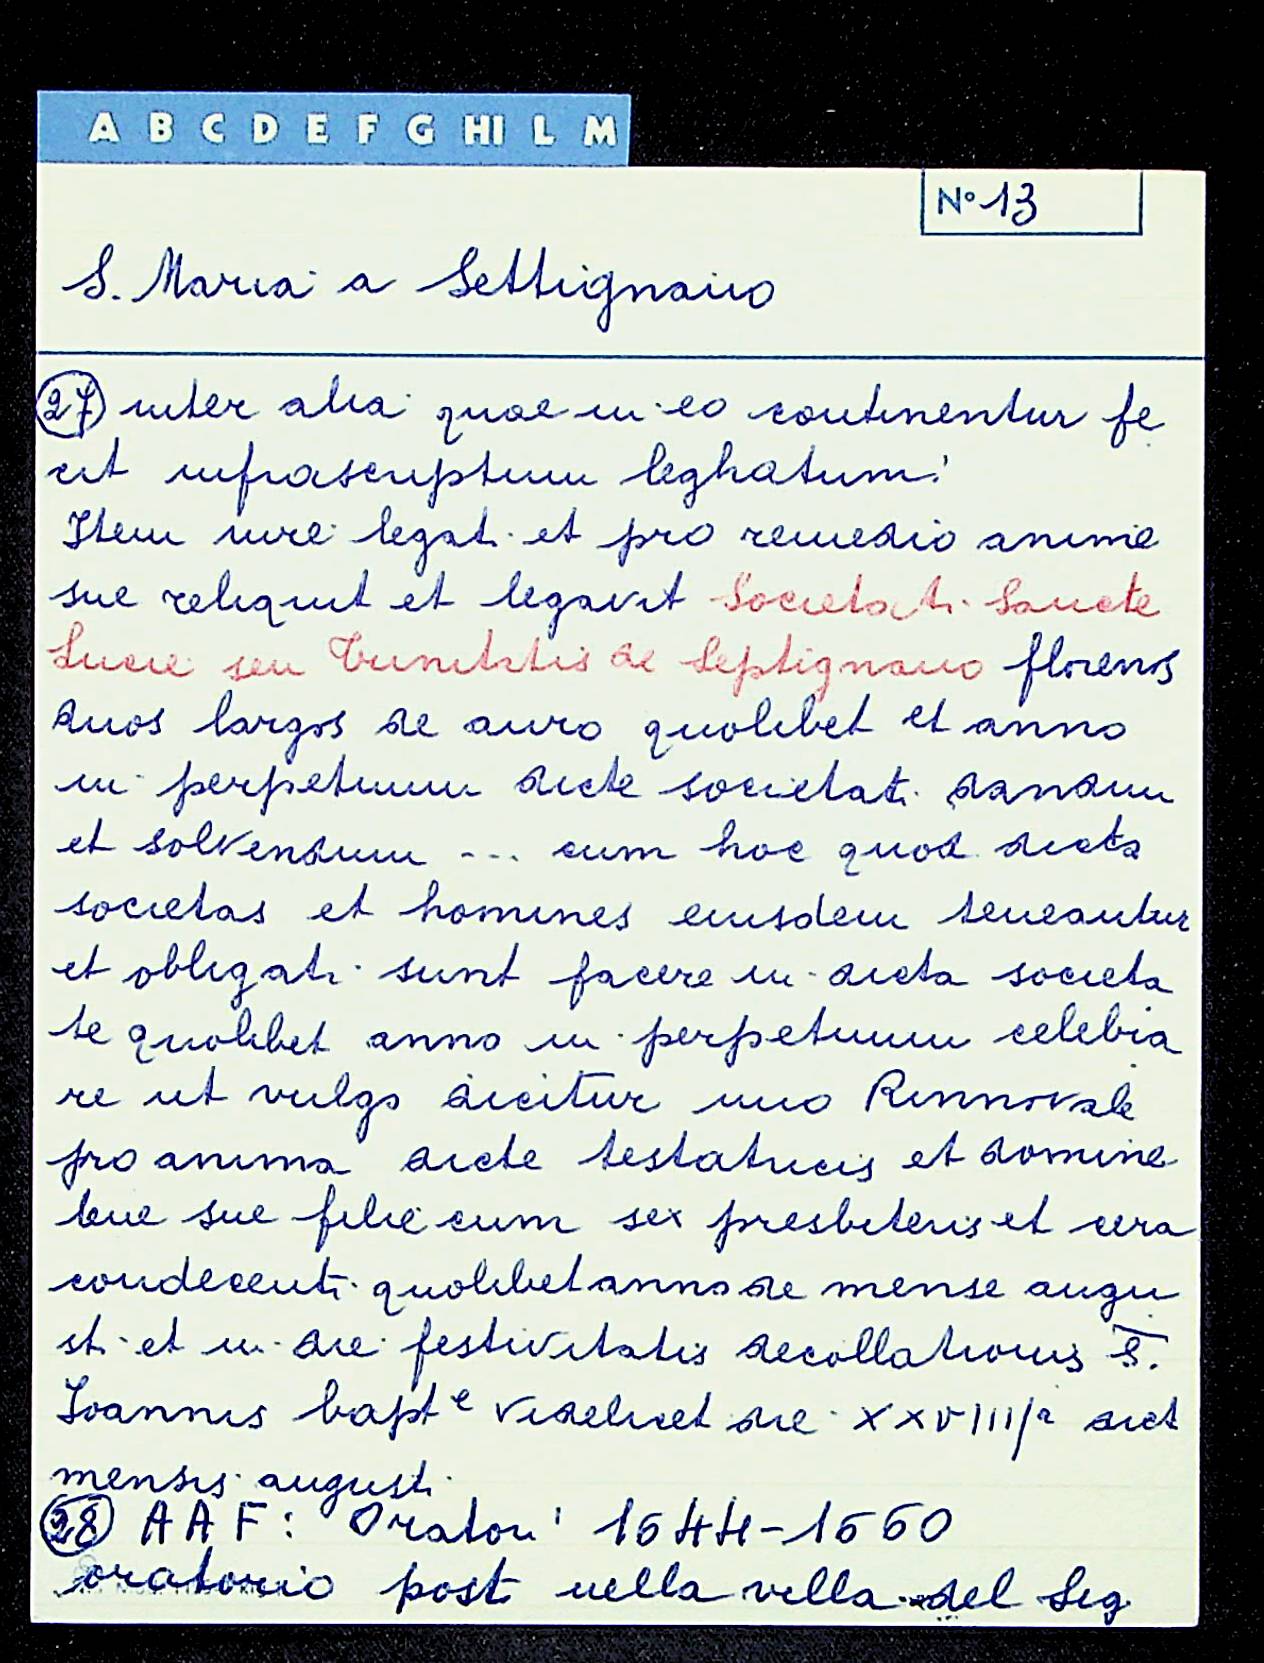 A B C D E F G HI L M
N° 13
S. Maria a Settignano
27 inter alia quae in eo continentur fe
cit infrascriptum leghatum:
Item iure legati et pro remedio anime
sue reliquit et legavit Societati Sancte
Lucie seu Trinitatis de Septignano florenos
duos largos de auro quolibet et anno
in perpetuum dicte societati dandum
et solvendum ... cum hoc quod dicta
societas et homines eiusdem teneantur
et obligati sunt facere in dicta societa
te quolibet anno in perpetuum celebra
re ut vulgo dicitur uno Rinnovale
pro anima dicte testatricis et domine
sue filie cum sex presbiteris et cera
condecenti quolibet anno de mense augu
sti et in die festivitatis decollationis S.
Ioannis bapte videlicet die XXVIIII/a dict
mensis augusti
28 AAF: Oratori 1544-1560
oratorio posti nella villa del Sig